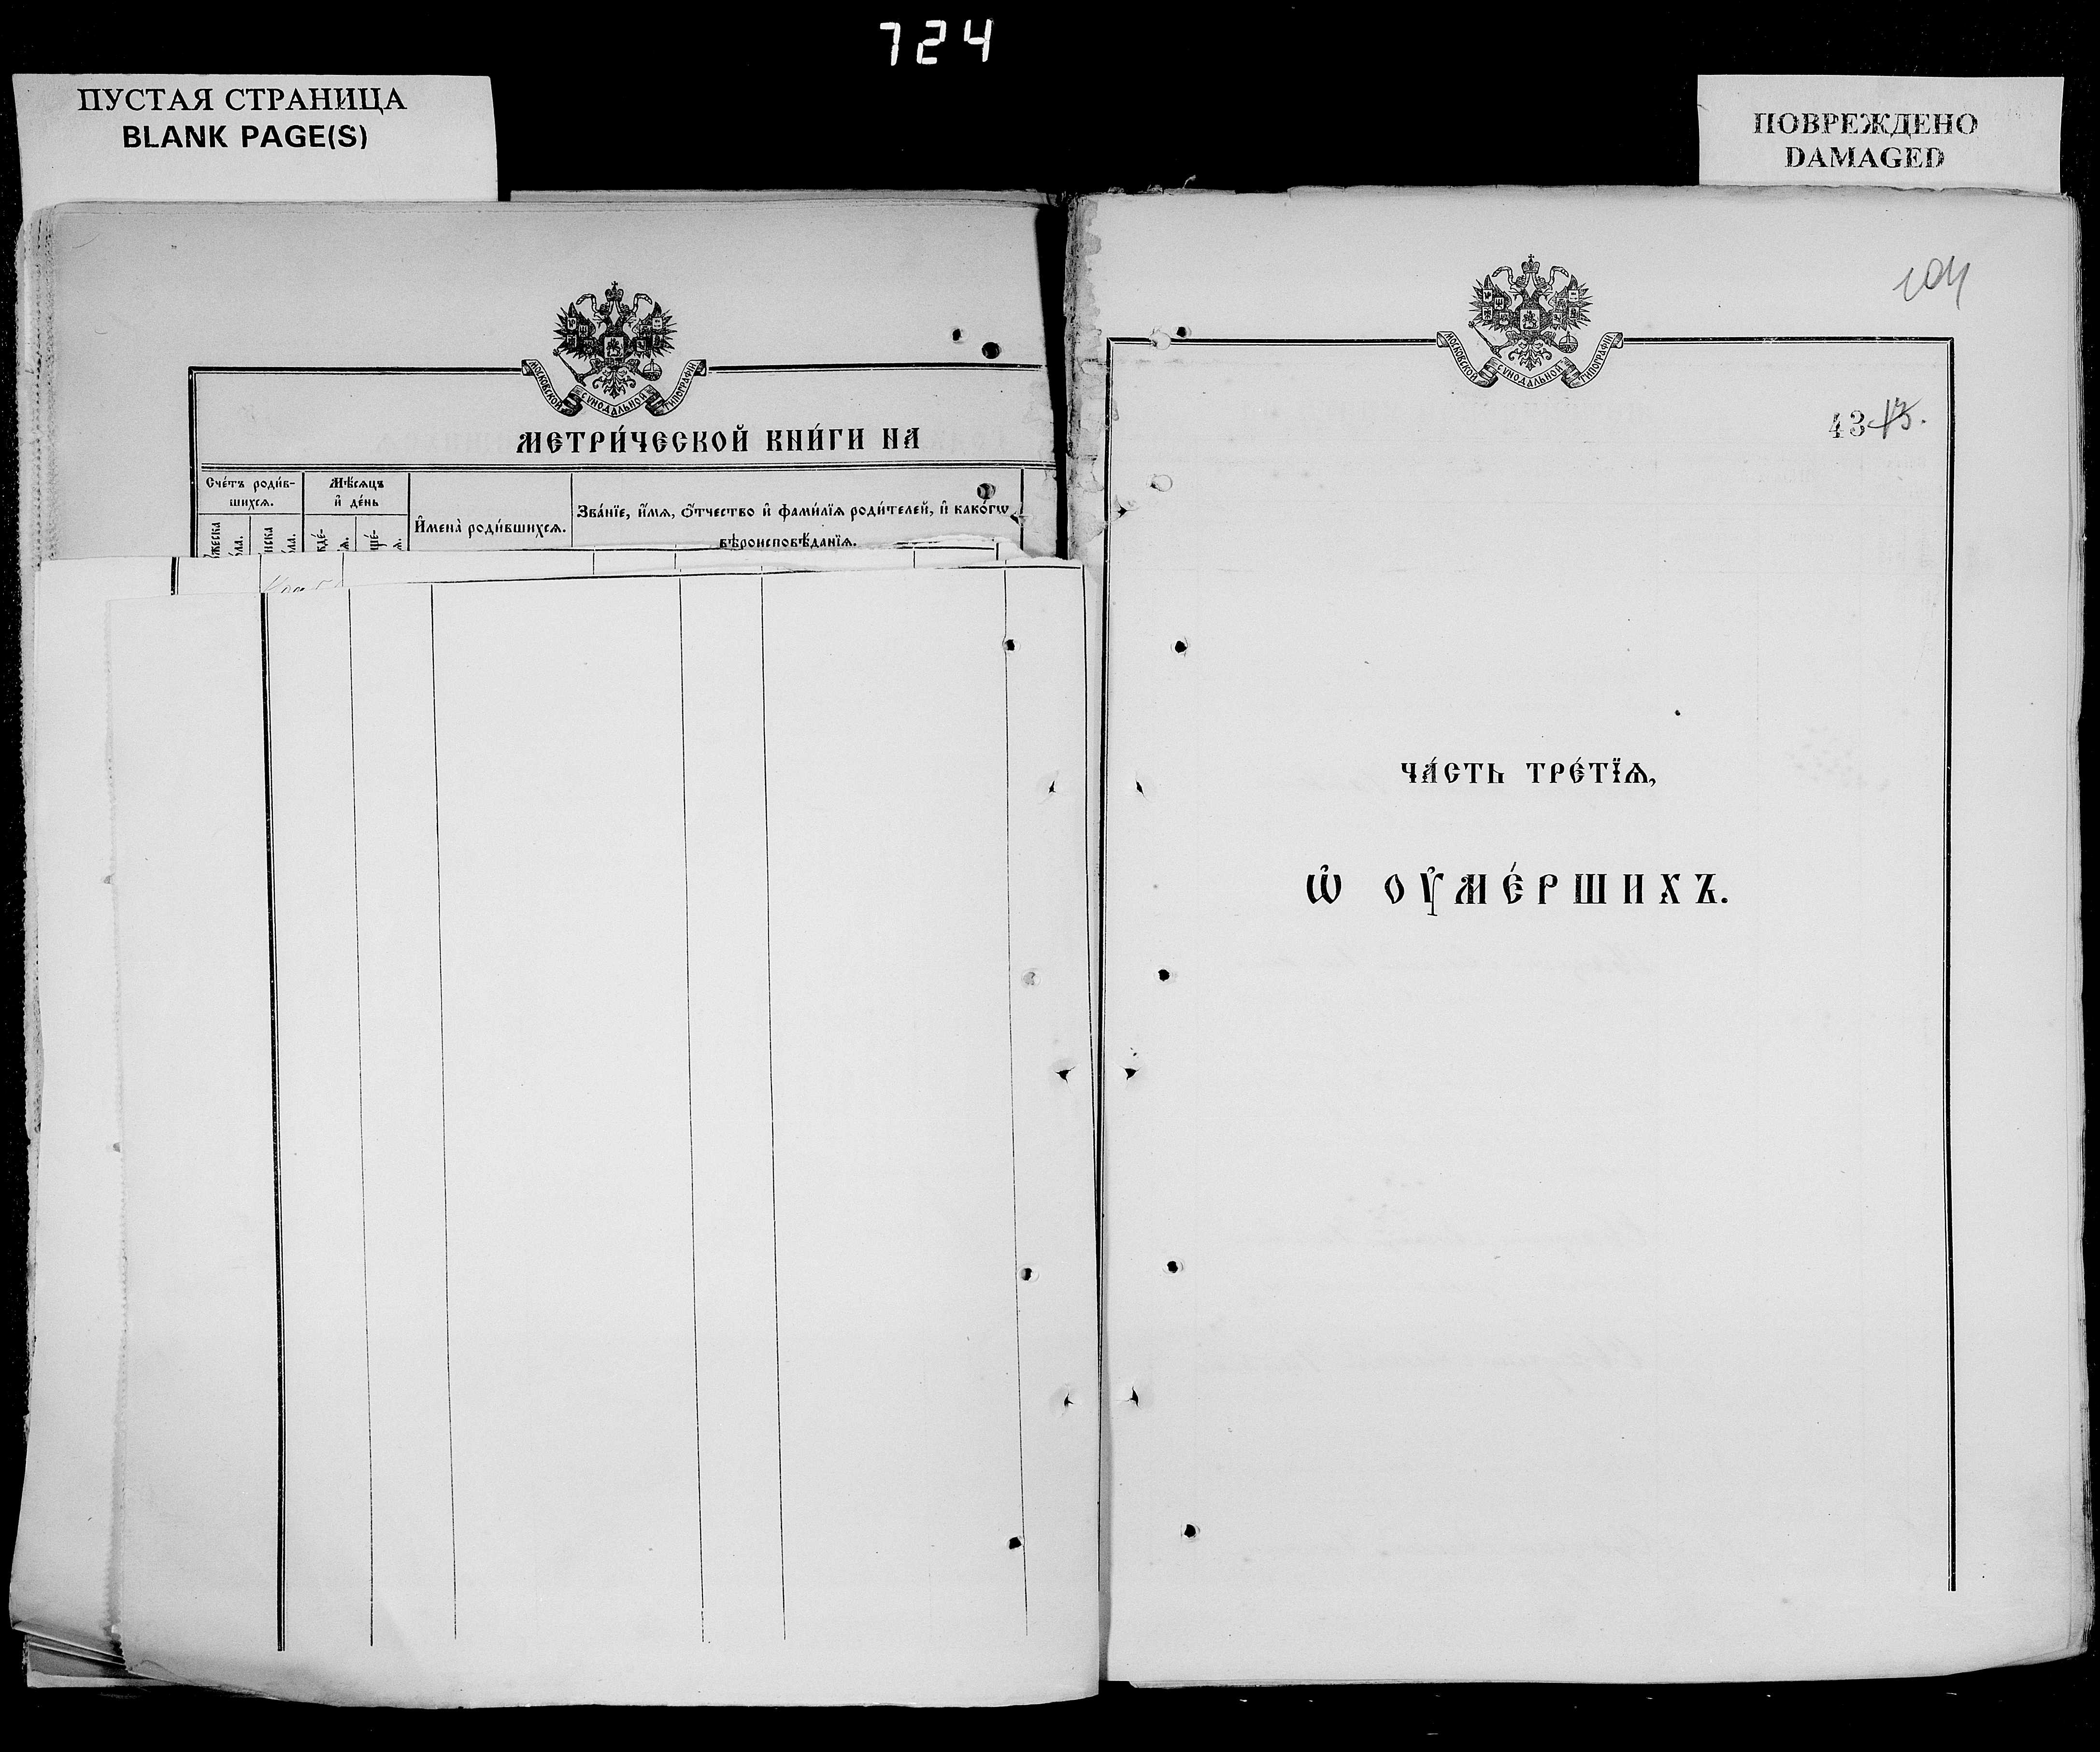 724
ПУСТАЯ СТРАНИЦА
BLANK PAGE(S)
ПОВРЕЖДЕНО
DAMAGED
МОСКОВСКОЙ СѴНОДАЛЬНОЙ ТИПОГРАФІИ
МЕТРИ́ЧЕСКОЙ КНИ́ГИ НА
Сче́тъ роди́в-
шихсѧ.
Мѣ́сѧцъ
и҆ де́нь
И҆мена̀ роди́вшихсѧ.
Зва́нїе, и҆́мѧ, ѻ҆́тчество и҆ фами́лїѧ роди́телей, и҆ како́гѡ
вѣроисповѣ́данїѧ.
104
МОСКОВСКОЙ СѴНОДАЛЬНОЙ ТИПОГРАФІИ
43
ЧА́СТЬ ТРЕ́ТЇѦ,
Ѡ҆ ОУ҆МЕ́РШИХЪ.